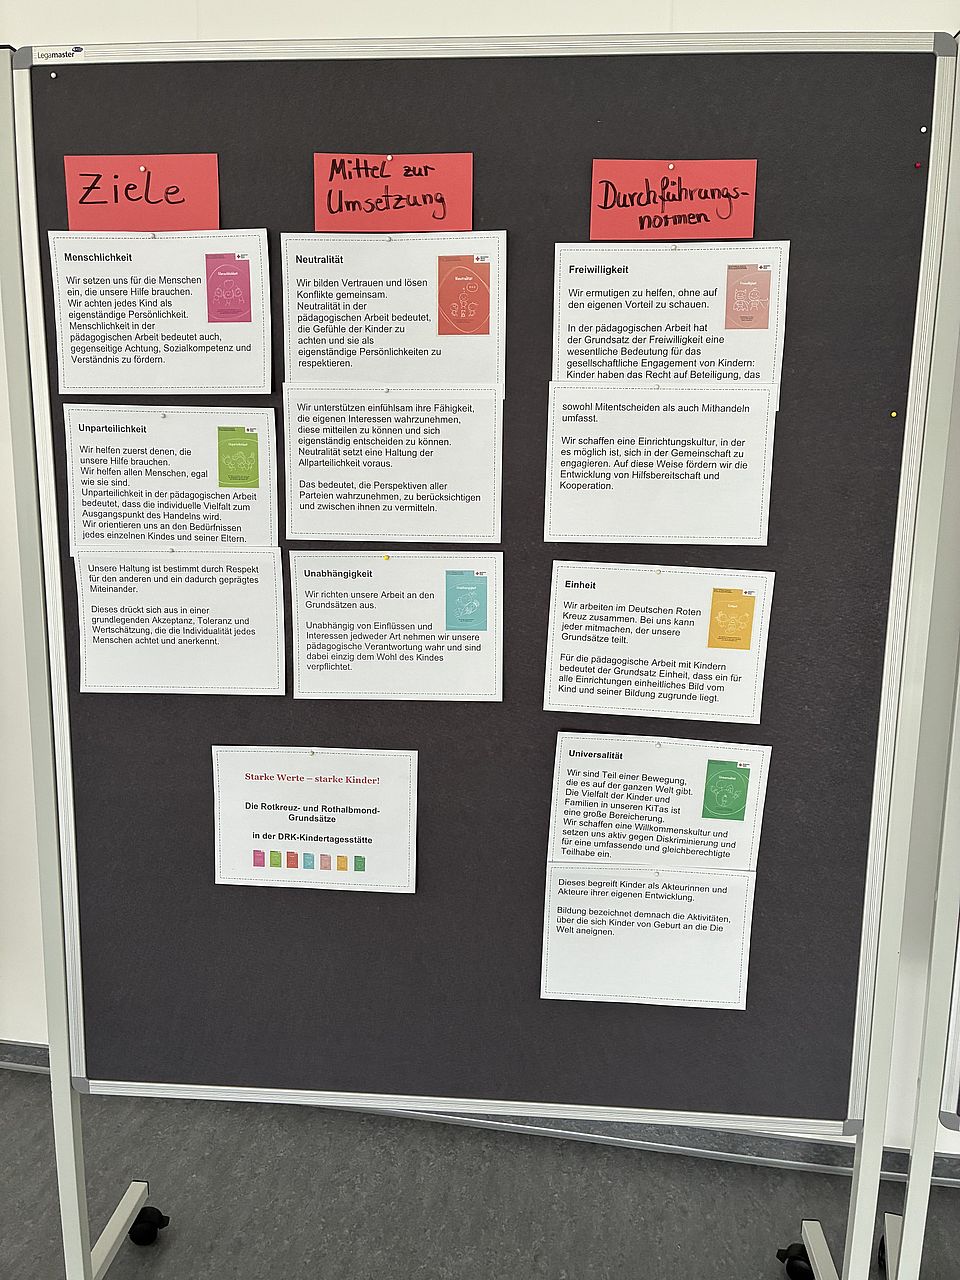 Legamaster
Ziele
Menschlichkeit
Wir setzen uns für die Menschen
ein, die unsere Hilfe brauchen.
Wir achten jedes Kind als
eigenständige Persönlichkeit.
Menschlichkeit in der
pädagogischen Arbeit bedeutet auch,
gegenseitige Achtung, Sozialkompetenz und
Verständnis zu fördern.
Menschlichkeit
Unparteilichkeit
Wir helfen zuerst denen, die
unsere Hilfe brauchen.
Wir helfen allen Menschen, egal
wie sie sind.
Unparteilichkeit in der pädagogischen Arbeit
bedeutet, dass die individuelle Vielfalt zum
Ausgangspunkt des Handelns wird.
Wir orientieren uns an den Bedürfnissen
jedes einzelnen Kindes und seiner Eltern.
Unparteilichkeit
Unsere Haltung ist bestimmt durch Respekt
für den anderen und ein dadurch geprägtes
Miteinander.
Dieses drückt sich aus in einer
grundlegenden Akzeptanz, Toleranz und
Wertschätzung, die die Individualität jedes
Menschen achtet und anerkennt.
Mittel zur
Umsetzung
Neutralität
Wir bilden Vertrauen und lösen
Konflikte gemeinsam.
Neutralität in der
pädagogischen Arbeit bedeutet,
die Gefühle der Kinder zu
achten und sie als
eigenständige Persönlichkeiten zu
respektieren.
Neutralität
Wir unterstützen einfühlsam ihre Fähigkeit,
die eigenen Interessen wahrzunehmen,
diese mitteilen zu können und sich
eigenständig entscheiden zu können.
Neutralität setzt eine Haltung der
Allparteilichkeit voraus.
Das bedeutet, die Perspektiven aller
Parteien wahrzunehmen, zu berücksichtigen
und zwischen ihnen zu vermitteln.
Unabhängigkeit
Wir richten unsere Arbeit an den
Grundsätzen aus.
Unabhängig von Einflüssen und
Interessen jedweder Art nehmen wir unsere
pädagogische Verantwortung wahr und sind
dabei einzig dem Wohl des Kindes
verpflichtet.
Unabhängigkeit
Durchführungs-
normen
Freiwilligkeit
Wir ermutigen zu helfen, ohne auf
den eigenen Vorteil zu schauen.
In der pädagogischen Arbeit hat
der Grundsatz der Freiwilligkeit eine
wesentliche Bedeutung für das
gesellschaftliche Engagement von Kindern:
Kinder haben das Recht auf Beteiligung, das
Freiwilligkeit
sowohl Mitentscheiden als auch Mithandeln
umfasst.
Wir schaffen eine Einrichtungskultur, in der
es möglich ist, sich in der Gemeinschaft zu
engagieren. Auf diese Weise fördern wir die
Entwicklung von Hilfsbereitschaft und
Kooperation.
Einheit
Wir arbeiten im Deutschen Roten
Kreuz zusammen. Bei uns kann
jeder mitmachen, der unsere
Grundsätze teilt.
Für die pädagogische Arbeit mit Kindern
bedeutet der Grundsatz Einheit, dass ein für
alle Einrichtungen einheitliches Bild vom
Kind und seiner Bildung zugrunde liegt.
Einheit
Universalität
Wir sind Teil einer Bewegung,
die es auf der ganzen Welt gibt.
Die Vielfalt der Kinder und
Familien in unseren KiTas ist
eine große Bereicherung.
Wir schaffen eine Willkommenskultur und
setzen uns aktiv gegen Diskriminierung und
für eine umfassende und gleichberechtigte
Teilhabe ein.
Universalität
Dieses begreift Kinder als Akteurinnen und
Akteure ihrer eigenen Entwicklung.
Bildung bezeichnet demnach die Aktivitäten,
über die sich Kinder von Geburt an die Die
Welt aneignen.
Starke Werte – starke Kinder!
Die Rotkreuz- und Rothalbmond-
Grundsätze
in der DRK-Kindertagesstätte